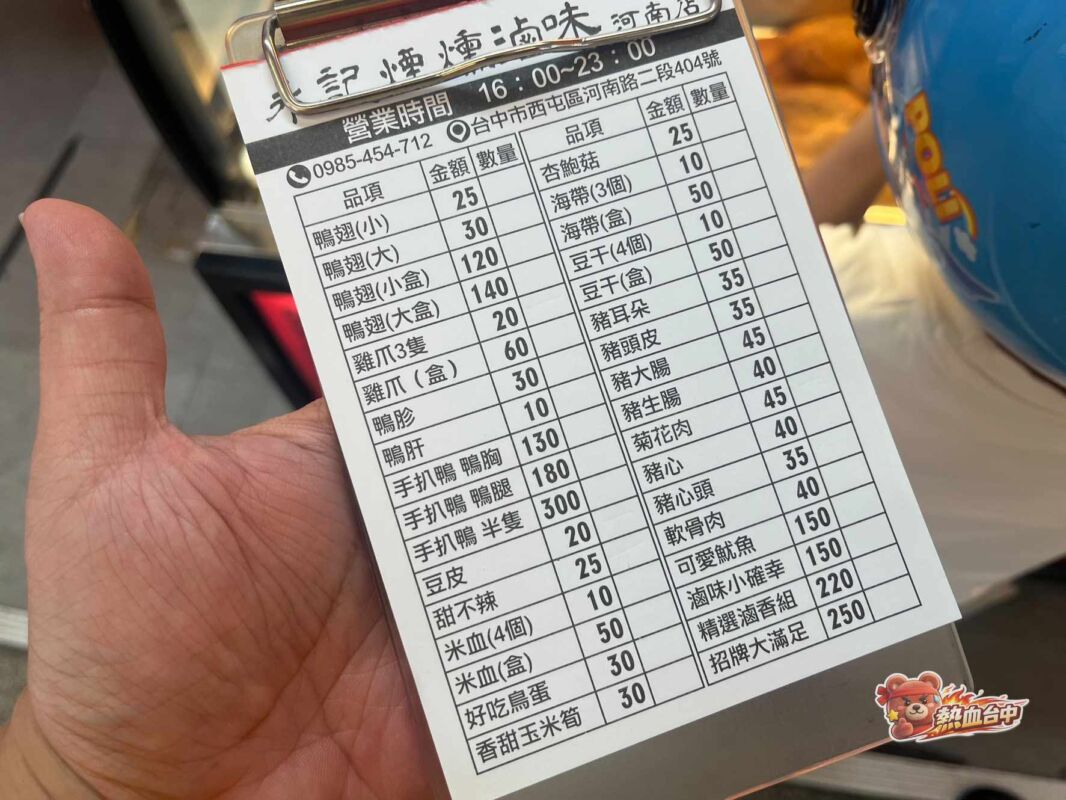 記煙燻滷味 河南店
營業時間 16:00~23:00
0985-454-712 台中市西屯區河南路二段404號
品項 金額 數量
鴨翅(小) 25
鴨翅(大) 30
鴨翅(小盒) 120
鴨翅(大盒) 140
雞爪3隻 20
雞爪(盒) 60
鴨胗 30
鴨肝 10
手扒鴨 鴨胸 130
手扒鴨 鴨腿 180
手扒鴨 半隻 300
豆皮 20
甜不辣 25
米血(4個) 10
米血(盒) 50
好吃鳥蛋 30
香甜玉米筍 30
品項 金額 數量
杏鮑菇 25
海帶(3個) 10
海帶(盒) 50
豆干(4個) 10
豆干(盒) 50
豬耳朵 35
豬頭皮 35
豬大腸 45
豬生腸 40
菊花肉 45
豬心 40
豬心頭 35
軟骨肉 40
可愛魷魚 150
滷味小確幸 150
精選滷香組 220
招牌大滿足 250
POLI
熱血台中